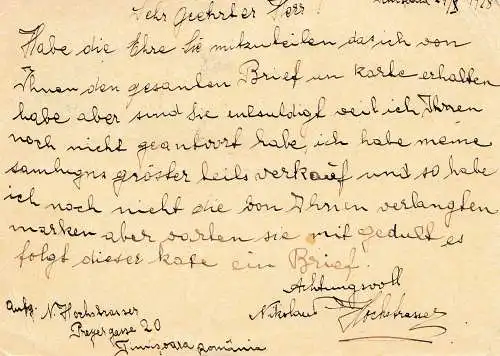 Sehr Geehrter Herr!
Habe die Ehre Sie mitzuteilen das ich von
Ihnen den gesanten Brief un karte erhalten
habe aber sind Sie entsuldigt veil ich Ihnen
noch nicht geantvort habe, ich habe meine
samlugns gröster teils verkauf und so habe
ich noch nicht die von Ihnen verlangten
marken aber varten sie mit gedult es
folgt dieser kate ein Brief.
Achtungsvoll
Nikolaus Hochstrasser
N. Hochstrasser
20
Timișoara România